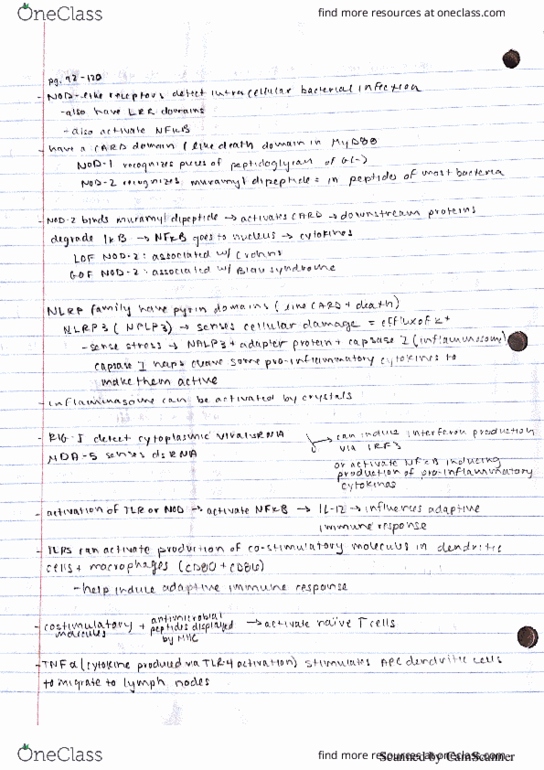 OneClass
find more resources at oneclass.com
pg. 92-120
- NOD-like receptors detect intracellular bacterial infection
- also have LRR domains
- also activate NFκB
- have a CARD domain (like death domain in MyD88
NOD-1 recognizes pieces of peptidoglycan of G(-)
NOD-2 recognizes muramyl dipeptide = in peptides of most bacteria
- NOD-2 binds muramyl dipeptide → activates CARD → downstream proteins
degrade IκB → NFκB goes to nucleus → cytokines
LOF NOD-2: associated w/ Crohns
GOF NOD-2: associated w/ Blau syndrome
NLRP family have pyrin domains (like CARD + death)
NLRP3 (NALP3) → senses cellular damage = efflux of K+
- sense stress → NALP3 + adapter protein + capsase 1 (inflammasome)
capsase 1 helps cleave some pro-inflammatory cytokines to
make them active
- inflammasome can be activated by crystals
- RIG-I detect cytoplasmic viral ssRNA
MDA-5 senses dsRNA
can induce interferon production
via IRF3
or activate NFκB inducing
production of pro-inflammatory
cytokines
- activation of TLR or NOD → activate NFκB → IL-12 → influences adaptive
immune response
- TLRs can activate production of co-stimulatory molecules in dendritic
cells + macrophages (CD80 + CD86)
- help induce adaptive immune response
- costimulatory molecules + antimicrobial peptides displayed by MHC → activate naive T cells
- TNFα (cytokine produced via TLR-4 activation) stimulates APC dendritic cells
to migrate to lymph nodes
OneClass
find more resources at oneclass.com
Scanned by CamScanner